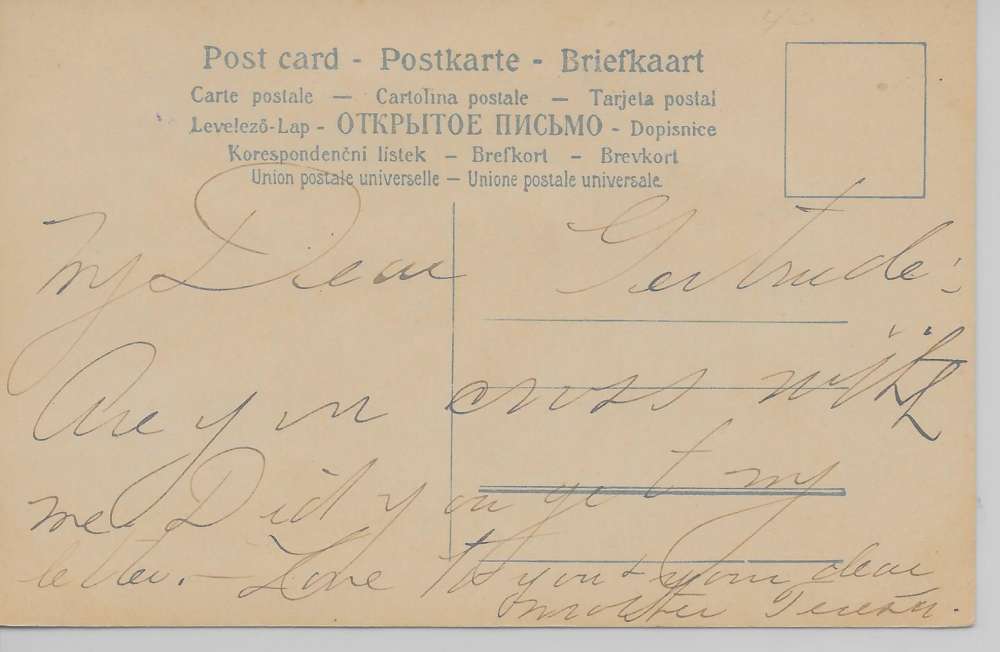 Post card - Postkarte - Briefkaart
Carte postale — Cartolina postale — Tarjeta postal
Levelező-Lap - ОТКРЫТОЕ ПИСЬМО - Dopisnice
Korespondenční listek — Brefkort — Brevkort
Union postale universelle — Unione postale universale
My Dear Gertrude:
Are you cross with
me Did you get my
letter. — Love to you & your dear